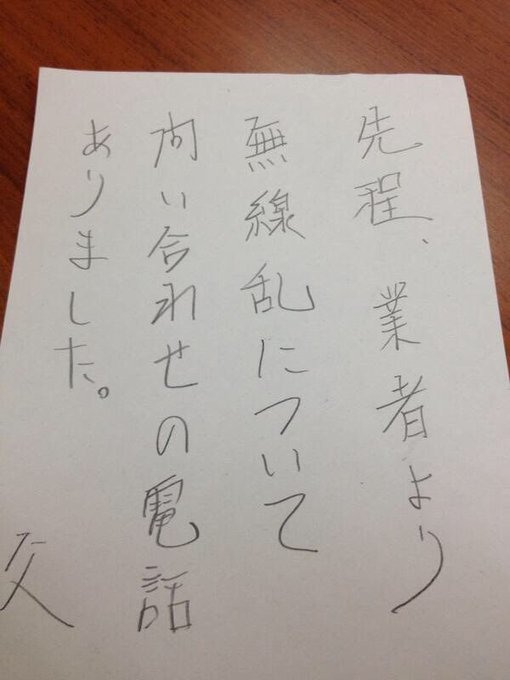 先程、業者より
無線乱について
問い合れせの電話
ありました。